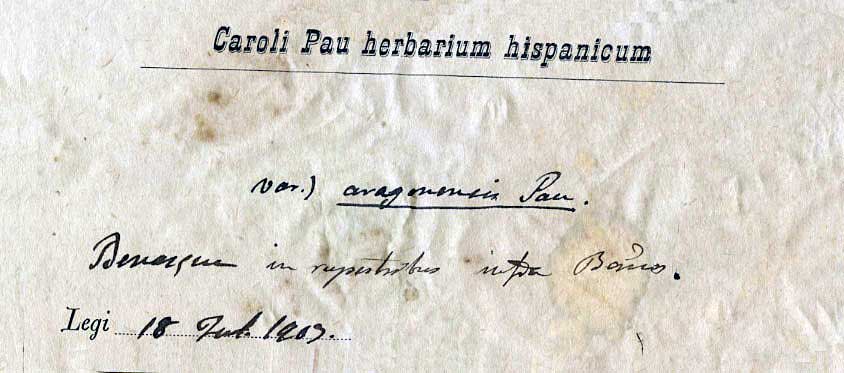 Caroli Pau herbarium hispanicum
var.) aragonensis Pau.
Benasque in rupestribus infra Baños.
Legi 18 Jul.